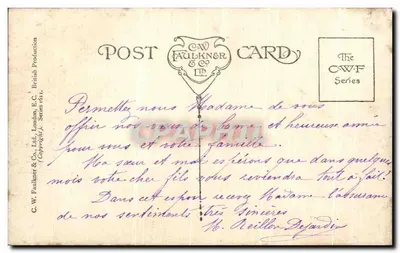 POST CARD
C.W. FAULKNER & Co LTD.
The C.W.F Series
C. W. Faulkner & Co., Ltd., London, E.C. British Production
(Copyright.) Series 1612.
Permettez nous Madame de vous
offrir nos vœux, bonne et heureuse année
pour vous et votre famille.
Ma sœur et moi espérons que dans quelques
mois votre cher fils vous reviendra tout à fait!
Dans cet espoir recevez Madame l'assurance
de nos sentiments très sincères
M. Dejardin